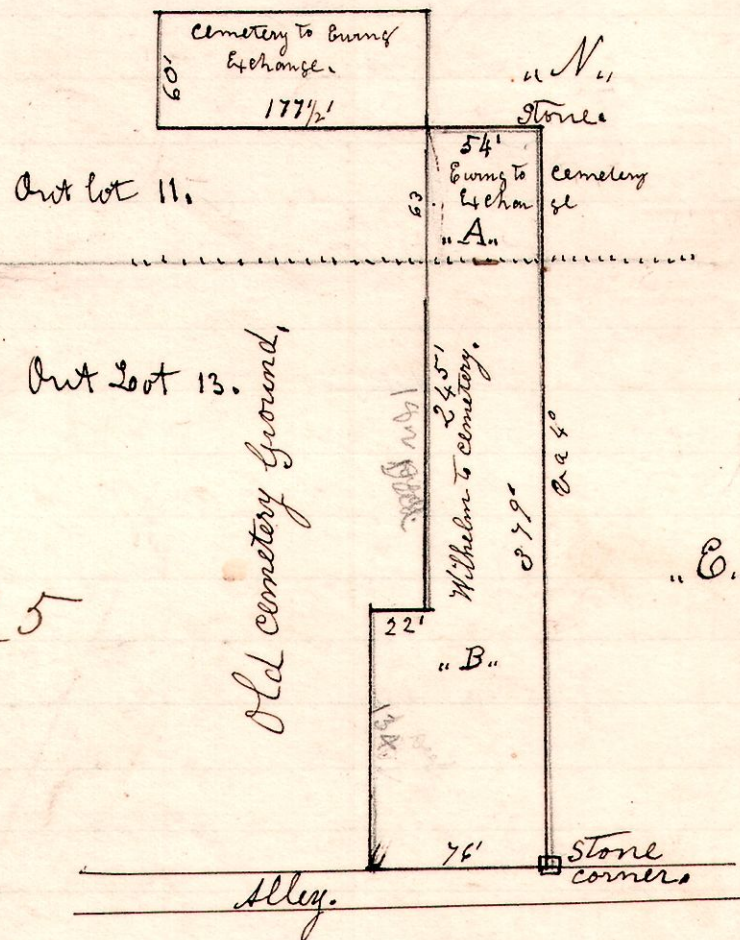 Cemetery to Ewing
Exchange.
60'
177½'
"N"
Stone.
54'
Out lot 11.
63
Ewing to Cemetery
Exchange
"A"
Out Lot 13.
Old Cemetery Ground,
245'
Wilhelm to Cemetery.
379'
"E.
5
22'
"B"
76'
Stone
corner.
Alley.